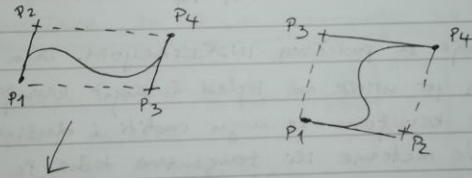 P2 P4
P1 P3
P3 P4
P1 P2